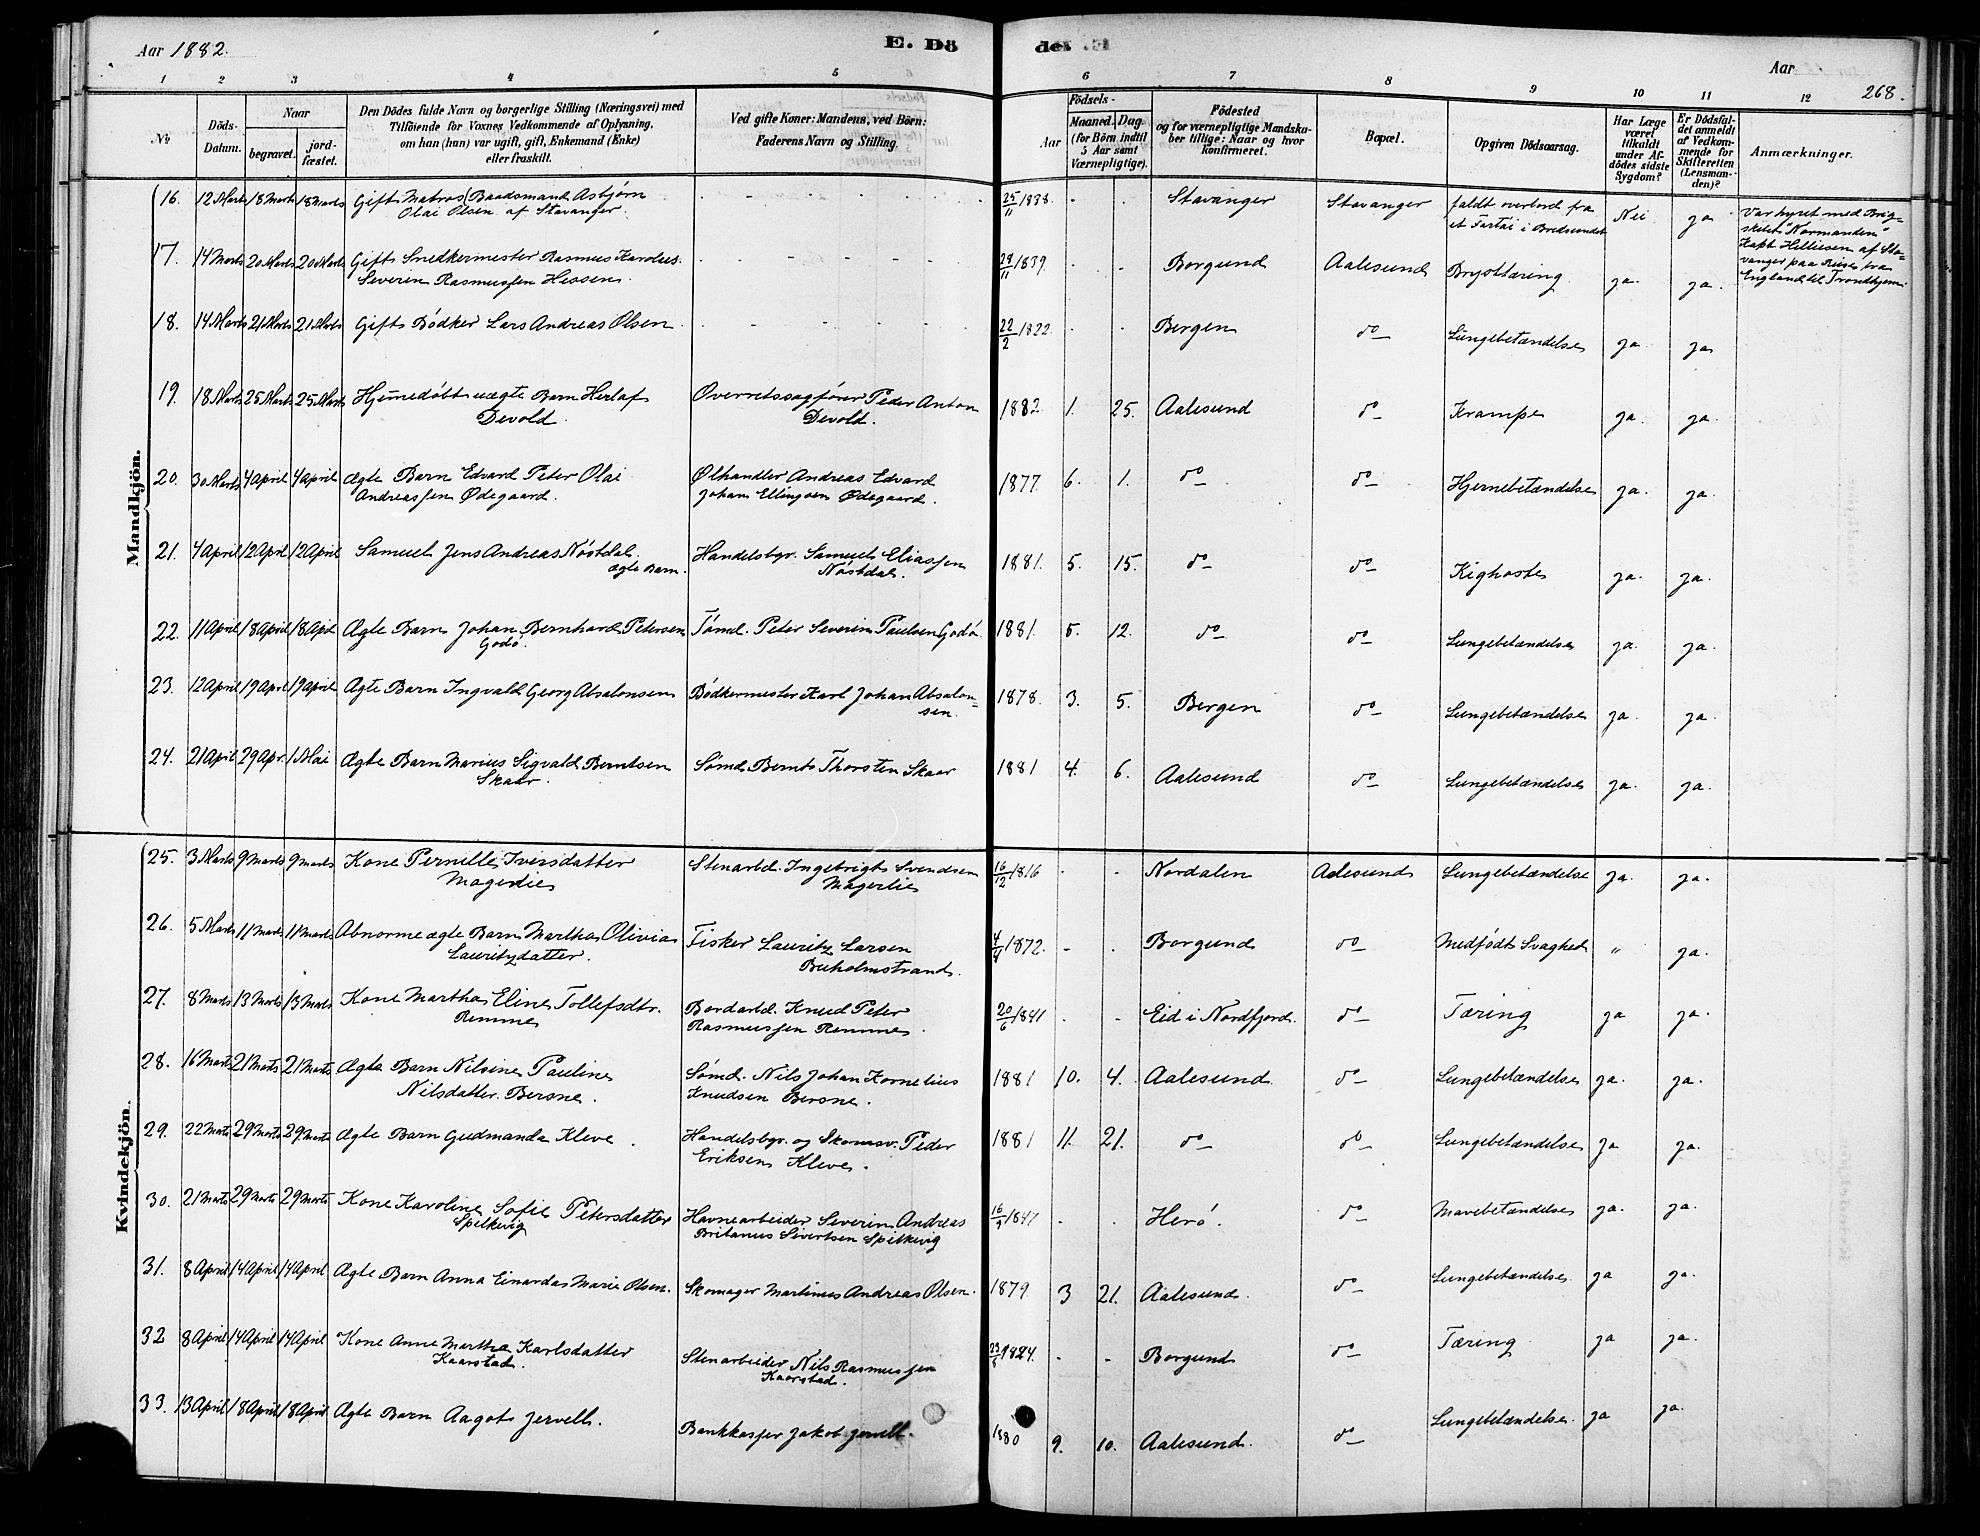 Aar 1882.
E. Dö
de
Aar
268.
1 2 3 4 5 6 7 8 9 10 11 12
No
Döds-Datum.
Naar
begravet.
jord-fæstet.
Den Dödes fulde Navn og borgerlige Stilling (Næringsvei) med
Tilföiende for Voxnes Vedkommende af Oplysning,
om han (hun) var ugift, gift, Enkemand (Enke)
eller fraskilt.
Ved gifte Koner: Mandens, ved Börn:
Faderens Navn og Stilling.
Födsels-
Aar
Maaned. Dag.
(for Börn indtil
5 Aar samt
Værnepligtige).
Födested
og for værnepligtige Mandska-
ber tillige: Naar og hvor
konfirmeret.
Bopæl.
Opgiven Dödsaarsag.
Har Læge
været
tilkaldt
under Af-
dödes sidste
Sygdom?
Er Dödsfal-
det anmeldt
af Vedkom-
mende for
Skifteretten
(Lensman-
den)?
Anmærkninger.
Mandkjön.
16. 12 Marts 18 Marts 18 Marts Gift Matros (Baadsmand Asbjørn - - - 25/11 1838 - - Stavanger Stavanger faldt overbord fra Nei ja Var hyret med Brig-
Olai Olsen af Stavanger. et Fartøi i Bredsundet skibet "Normanden"
Kapt Helliesen af Sta-
vanger paa Reise fra
England til Trondhjem
17. 14 Marts 20 Marts 20 Marts Gift Snedkermester Rasmus Karolus - - - 1839. - - Borgund Aalesund Brysttæring ja. ja.
Severin Rasmussen Hessen
18. 14 Marts 21 Marts 21 Marts Gift Bødker Lars Andreas Olsen - - - 22/2 1822. - - Bergen do Lungebetændelse ja. ja
19. 18 Marts 25 Marts 25 Marts Hjemmedøbt uægte Barn Herlaf Overretssagfører Peder Anton 1882. 1. 25. Aalesund do Krampe ja. ja.
Devold. Devold.
20. 30 Marts 4 April 4 April Ægte Barn Edvard Peter Olai Ølhandler Andreas Edvard 1877. 6. 1. do do Hjernebetændelse ja. ja.
Andreassen Ødegaard. Johan Ellingsen Ødegaard.
21. 4 April 12 April 12 April Samuel Jens Andreas Nøstdal. Handelsbgr. Samuel Eliassen 1881. 5. 15. do do Kighoste ja. ja.
ægte Barn. Nøstdal.
22. 11 April 18 April 18 April Ægte Barn Johan Bernhard Petersen Tømd. Peter Severin Paulsen Godø. 1881. 5. 12. do do Lungebetændelse ja. ja.
Godø.
23. 12 April 19 April 19 April Ægte Barn Ingvald Georg Absalonsen Bødkermester Karl Johan Absalon- 1878. 3. 5. Bergen do Lungebetændelse ja. ja.
sen.
24. 21 April 29 Apr. 1 Mai Ægte Barn Marius Sigvald Berntsen Sømd Bernt Thorsten Skaar 1881 4. 6. Aalesund do Lungebetændelse ja. ja.
Skaar.
Kvindekjön.
25. 3 Marts 9 Marts 9 Marts Kone Pernille Iversdatter Stenarbd. Ingebrigt Svendsen 16/12 1816 - - Nordalen Aalesund Lungebetændelse ja. ja.
Magerlie Magerlie
26. 5 Marts 11 Marts 11 Marts Abnorme ægte Barn Martha Olivia Fisker Lauritz Larsen 4/4 1872. - - Borgund do Medfødt Svaghed " ja.
Lauritzdatter. Buholmstrand.
27. 8 Marts 13 Marts 13 Marts Kone Martha Eline Tollefsdtr. Bordarbd. Knud Peter 20/6 1841 - - Eid i Nordfjord. do Tæring ja ja.
Remme Rasmussen Remme.
28. 16 Marts 21 Marts 21 Marts Ægte Barn Nilsine Pauline Sømd. Nils Johan Kornelius 1881 10. 4. Aalesund do Lungebetændelse ja. ja.
Nilsdatter Bersne. Knudsen Bersne.
29. 22 Marts 29 Marts 29 Marts Ægte Barn Gudmanda Kleve. Handelsbgr. og Skomsv. Peder 1881 11. 21. do do Lungebetændelse ja ja.
Eriksen Kleve.
30. 21 Marts 29 Marts 29 Marts Kone Karoline Sofie Petersdatter Havnearbeider Severin Andreas 1847 - - Herø. do Mavebetændelse ja. ja.
Spilkevig Britanus Sivertsen Spilkevig
31. 8 April 14 April 14 April Ægte Barn Anna Einarda Marie Olsen. Skomager Martinus Andreas Olsen. 1879. 3 21. Aalesund. do Lungebetændelse. ja ja.
32 8 April 14 April 14 April Kone Anne Martha Karlsdatter Stenarbeider Nils Rasmussen 1824. - - Borgund do Tæring ja ja.
Kaarstad. Kaarstad.
33. 13 April 18 April 18 April Ægte Barn Aagot Jervell. Bankkasser Jakob Jervell. 1880 9. 10. Aalesund. do Lungebetændelse. ja ja.